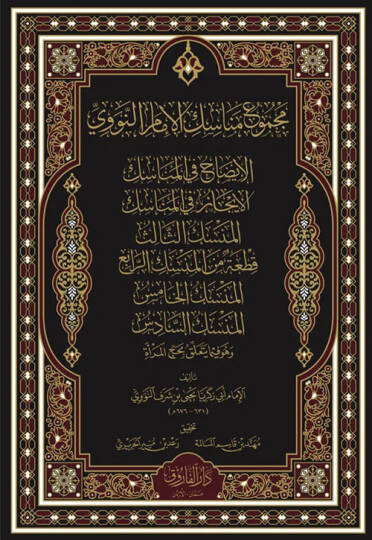 مجموع مناسك الإمام النووي
الإيضاح في المناسك
الإيجاز في المناسك
المنسك الثالث
قطعة من المنسك الرابع
المنسك الخامس
المنسك السادس
وهو فيما يتعلق بحج المرأة
تأليف
الإمام أبي زكريا يحيى بن شرف النووي
(٦٣١ - ٦٧٦ هـ)
تحقيق
مهند بن قاسم المسالمة
دار الفاروق